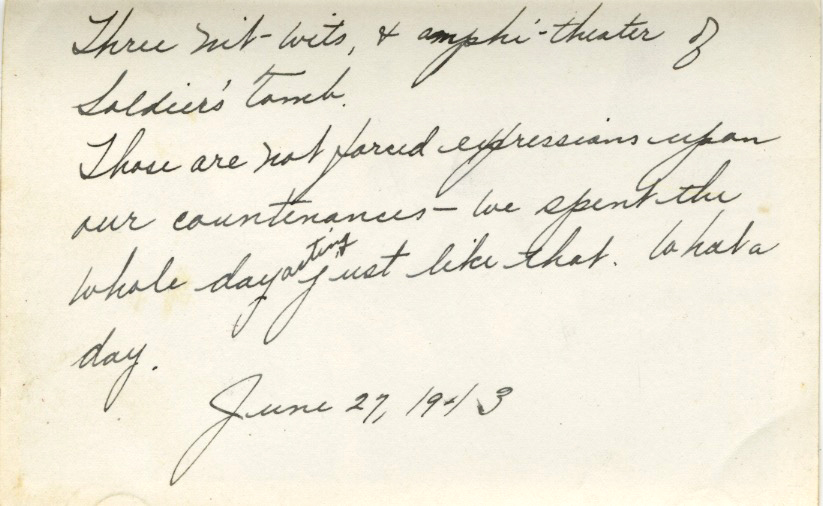 Three nit-wits, & amphi-theater of
Soldier's Tomb.
Those are not forced expressions upon
our countenances - we spent the
whole day acting just like that. What a
day.
June 27, 1943